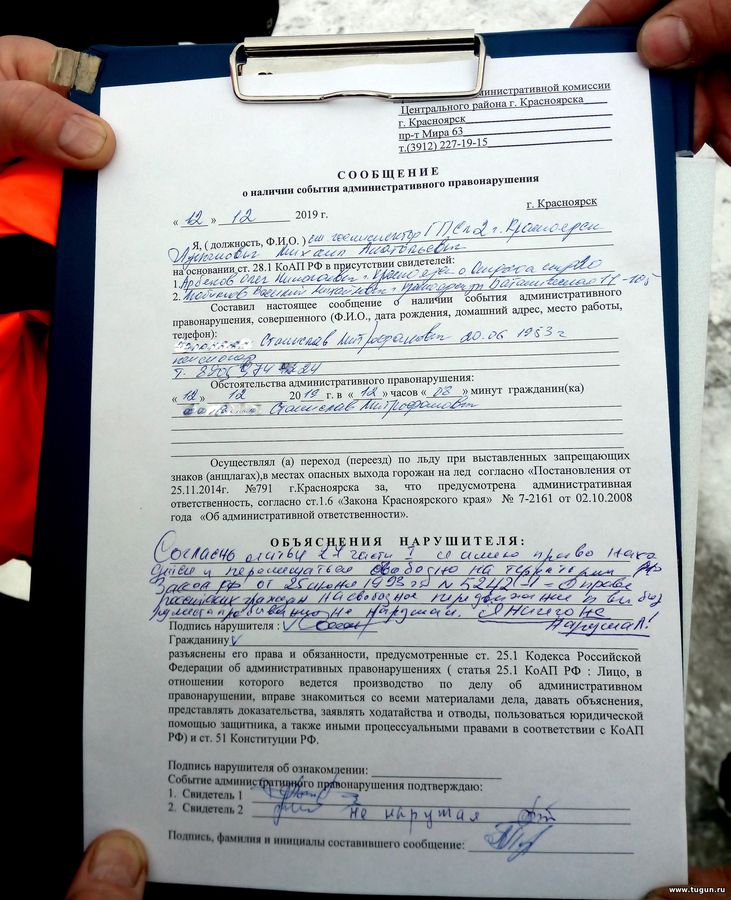 министративной комиссии
Центрального района г. Красноярска
г. Красноярск
пр-т Мира 63
т.(3912) 227-19-15
СООБЩЕНИЕ
о наличии события административного правонарушения
г. Красноярск
« 12 » 12 2019 г.
Я, ( должность, Ф.И.О. ) ст госинспектор г. Красноярск
Михаил Анатольевич
на основании ст. 28.1 КоАП РФ в присутствии свидетелей:
1. Олег Николаевич г. Красноярск о
2. Василий г. Красноярск
Составил настоящее сообщение о наличии события административного
правонарушения, совершенного (Ф.И.О., дата рождения, домашний адрес, место работы,
телефон):
Станислав Митрофанович 20.06 1953 г
пенсионер
т.
Обстоятельства административного правонарушения:
« 12 » 12 2019 г. в « 12 » часов « 08 » минут гражданин(ка)
Станислав Митрофанович
Осуществлял (а) переход (переезд) по льду при выставленных запрещающих
знаков (анщлагах),в местах опасных выхода горожан на лед согласно «Постановления от
25.11.2014г. №791 г.Красноярска за, что предусмотрена административная
ответственность, согласно ст.1.6 «Закона Красноярского края» № 7-2161 от 02.10.2008
года «Об административной ответственности».
ОБЪЯСНЕНИЯ НАРУШИТЕЛЯ:
Согласно статьи 27 части I я имею право нахо
дится и перемещаться свободно на территории РФ
Закон РФ от 25 июня 1993 г N 5242-1 О праве
граждан на свободное передвижение и выбор
места не нарушал. Я ничего не
Нарушал!
Подпись нарушителя :
Гражданину
разъяснены его права и обязанности, предусмотренные ст. 25.1 Кодекса Российской
Федерации об административных правонарушениях ( статья 25.1 КоАП РФ : Лицо, в
отношении которого ведется производство по делу об административном
правонарушении, вправе знакомиться со всеми материалами дела, давать объяснения,
представлять доказательства, заявлять ходатайства и отводы, пользоваться юридической
помощью защитника, а также иными процессуальными правами в соответствии с КоАП
РФ) и ст. 51 Конституции РФ.
Подпись нарушителя об ознакомлении:
Событие административного правонарушения подтверждаю:
1. Свидетель 1
2. Свидетель 2 не нарушал
Подпись, фамилия и инициалы составившего сообщение:
www.tugun.ru